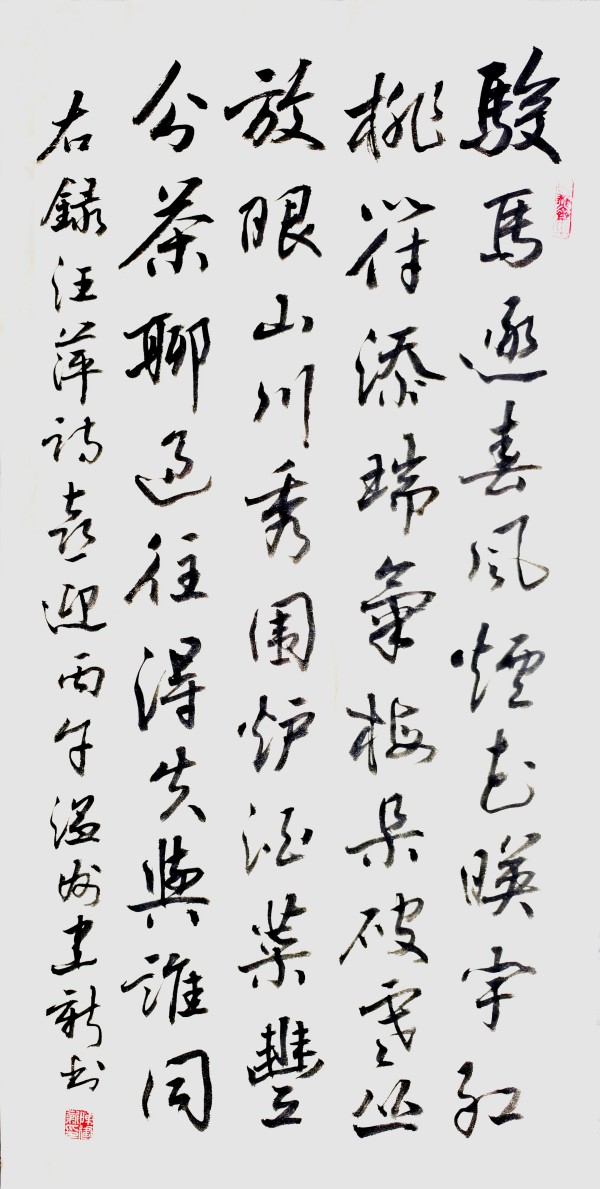 駿馬遞春風煙花暎宇紅
桃符添瑞氣梅朵破寒丛
放眼山川秀圍炉酒菜豐
分茶聊過往得失與誰同
右録汪萍詩喜迎丙午温州建新书